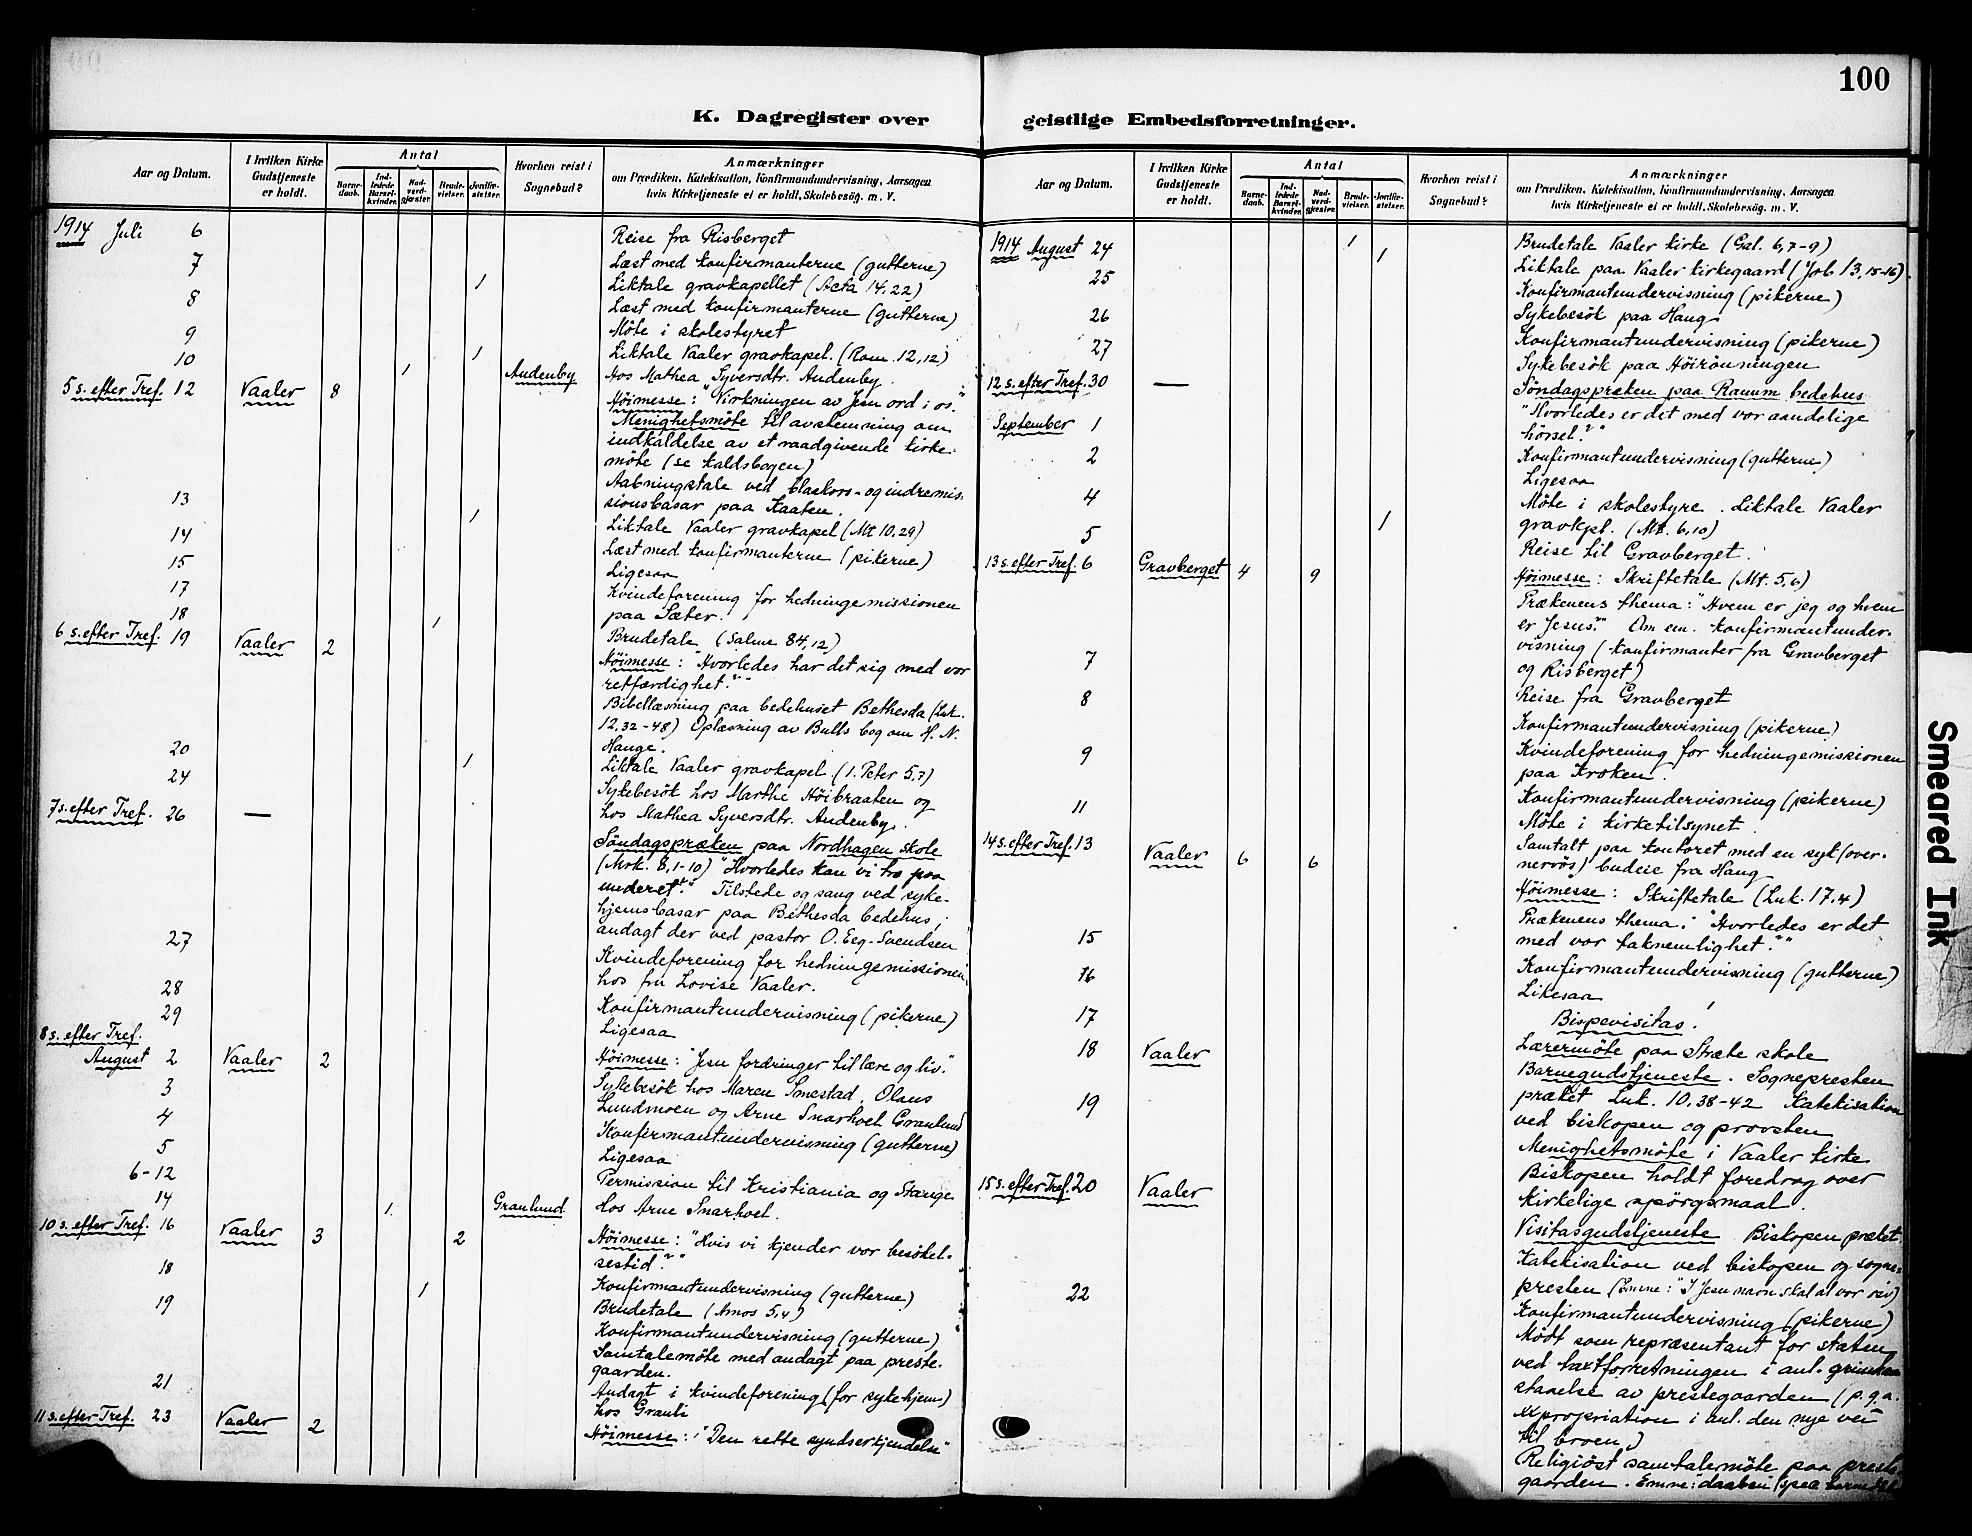 100
K. Dagregister over geistlige Embedsforretninger.
Aar og Datum.
I hvilken Kirke Gudstjeneste er holdt.
Antal
Barnedaab.
Indledede Barselkvinder.
Nadverdgjæster.
Brudevielser.
Jordfæstelser.
Hvorhen reist i Sognebud?
Anmærkninger
om Prædiken, Katekisation, Konfirmandundervisning, Aarsagen
hvis Kirketjeneste ei er holdt, Skolebesøg. m. V.
1914 Juli 6 Reise fra Risberget
7 Læst med konfirmanterne (gutterne)
1 Liktale gravkapellet (Acta 14,22)
8 Læst med konfirmanterne (gutterne)
9 Möte i skolestyret
10 1 Liktale Vaaler gravkapel. (Rom. 12,12)
1 Audenby Hos Mathea Syversdtr. Audenby.
5 s. efter Tref. 12 Vaaler 8 Höimesse: "Virkningen av Jesu ord i os."
Menighetsmöte til avstemning om
indkaldelse av et raadgivende kirke-
möte (se kaldsbogen)
13 Aabningstale ved blaakors- og indremis-
sionsbasar paa Kaaten.
14 1 Liktale Vaaler gravkapel (Mt 10,29)
15 Læst med konfirmanterne (pikerne)
Ligesaa
17 Kvindeforening for hedningemissionen
paa Sæter.
18 1 Brudetale (Salme 84,12)
6 s. efter Tref. 19 Vaaler 2 Höimesse: "Hvorledes har det sig med vor
retfærdighet?"
Bibellæsning paa bedehuset Bethesda (Luk.
12,32-48) Oplæsning av Bulls bog om H. N.
Hauge.
20 1 Liktale Vaaler gravkapel (1. Peter 5,7)
24 Sykebesök hos Marthe Höibraaten og
hos Mathea Syversdtr. Audenby.
7 s. efter Tref. 26 — Söndagspræken paa Nordhagen skole
(Mrk. 8,1-10) "Hvorledes kan vi tro paa
underet?" Tilstede og sang ved syke-
hjemsbasar paa Bethesda bedehus;
andagt der ved pastor O. Eeg-Svendsen
27 Kvindeforening for hedningemissionen
hos fru Lovise Vaaler.
28 Konfirmantundervisning (pikerne)
29 Ligesaa
8 s. efter Tref.
August 2 Vaaler 2 Höimesse: "Jesu fordringer til lære og liv."
3 Sykebesök hos Maren Smestad, Olaus
Lundmoen og Arne Snarhoel Granlund
4 Konfirmantundervisning (gutterne)
5 Ligesaa
6-12 Permission til Kristiania og Stange
14 1 Granlund Hos Arne Snarhoel.
10 s. efter Tref. 16 Vaaler 3 2 Höimesse: "Hvis vi kjender vor besökel-
sestid?"
18 Konfirmantundervisning (gutterne)
19 1 Brudetale (Amos 5,4)
Konfirmantundervisning (gutterne)
Samtalemöte med andagt paa preste-
gaarden.
21 Andagt i kvindeforening (for sykehjem)
hos Grauli
11 s. efter Tref. 23 Vaaler 2 Höimesse: "Den rette syndserkjendelse"
Aar og Datum.
I hvilken Kirke Gudstjeneste er holdt.
Antal
Barnedaab.
Indledede Barselkvinder.
Nadverdgjæster.
Brudevielser.
Jordfæstelser.
Hvorhen reist i Sognebud?
Anmærkninger
om Prædiken, Katekisation, Konfirmandundervisning, Aarsagen
hvis Kirketjeneste ei er holdt, Skolebesøg. m. V.
1914 August 24 1 Brudetale Vaaler kirke (Gal. 6,7-9)
1 Liktale paa Vaaler kirkegaard (Job 13,15-16).
25 Konfirmantundervisning (pikerne)
Sykebesök paa Haug
26 Konfirmantundervisning (pikerne)
27 Sykebesök paa Höirönningen
12 s. efter Tref. 30 — Söndagspræken paa Ranum bedehus
"Hvorledes er det med vor aandelige
hörsel?"
September 1 Konfirmantundervisning (gutterne)
2 Ligesaa
4 1 Möte i skolestyre. Liktale Vaaler
gravkpl. (Mt. 6,10)
5 Reise til Gravberget.
13 s. efter Tref. 6 Gravberget 4 9 Höimesse: Skriftetale (Mt. 5,6)
Prækenens thema: "Hvem er jeg og hvem
er Jesus?" Om em. konfirmantunder-
visning (konfirmanter fra Gravberget
og Risberget)
7 Reise fra Gravberget
8 Konfirmantundervisning (pikerne)
Kvindeforening for hedningemissionen
paa Kroken.
9 Konfirmantundervisning (pikerne)
11 Möte i kirketilsynet
Samtalt paa kontoret med en syk (over-
nervös) budeie fra Haug
14 s. efter Tref. 13 Vaaler 6 6 Höimesse: Skriftetale (Luk. 17.4)
Prækenens thema: "Hvorledes er det
med vor taknemlighet?"
15 Konfirmantundervisning (gutterne)
16 Likesaa
Bispevisitas!
17 Lærermöte paa Stræte skole
18 Vaaler Barnegudstjeneste. Sognepresten
præket Luk. 10,38-42 Katekisation
ved biskopen og provsten
19 Menighetsmöte i Vaaler kirke
Biskopen holdt foredrag over
kirkelige spörgsmaal.
15 s. efter Tref. 20 Vaaler Visitasgudstjeneste Biskopen præket.
Katekisation ved biskopen og sogne-
presten (Emne: "I Jesu navn skal al vor )
22 Konfirmantundervisning (pikerne)
Mödt som repræsentant for staten
ved taxtforretningen i anl.
av prestegaarden (p. g. a.
expropriation i anl. den nye vei
til broen.)
Religiöst samtalemöte paa preste-
gaarden. Emne: daaben
Smeared Ink